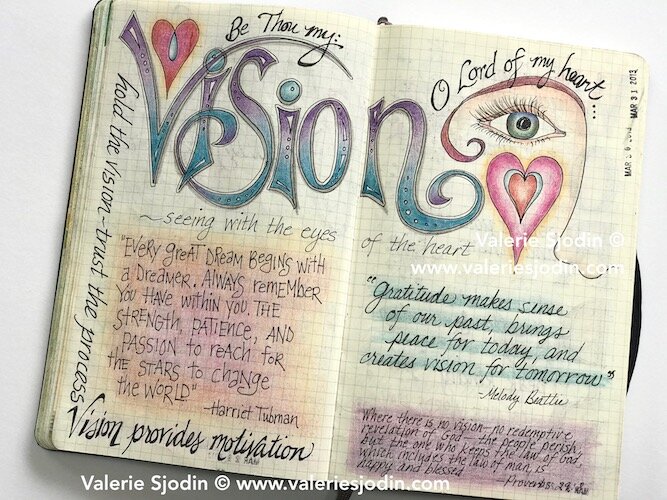 Be Thou my:
Vision
O Lord of my heart...
MAR 31 2013
hold the vision - trust the process
~ seeing with the eyes
of the heart
"EVERY GREAT DREAM BEGINS WITH
a DREAMER. ALWAYS REMEMBER
YOU HAVE WITHIN YOU. THE
STRENGTH, PATIENCE, AND
PASSION to REACH FOR
the STARS to CHANGE
the WORLD"
-Harriet Tubman
Vision provides motivation
Valerie Sjodin ©
www.valeriesjodin.com
"Gratitude makes sense
of our past, brings
peace for today, and
creates vision for tomorrow"
-Melody Beattie
Where there is no vision-no redemptive
revelation of God - the people perish,
but the one who keeps the law of God,
which includes the law of man, is
happy and blessed
-Proverbs
Valerie Sjodin © www.valeriesjodin.com